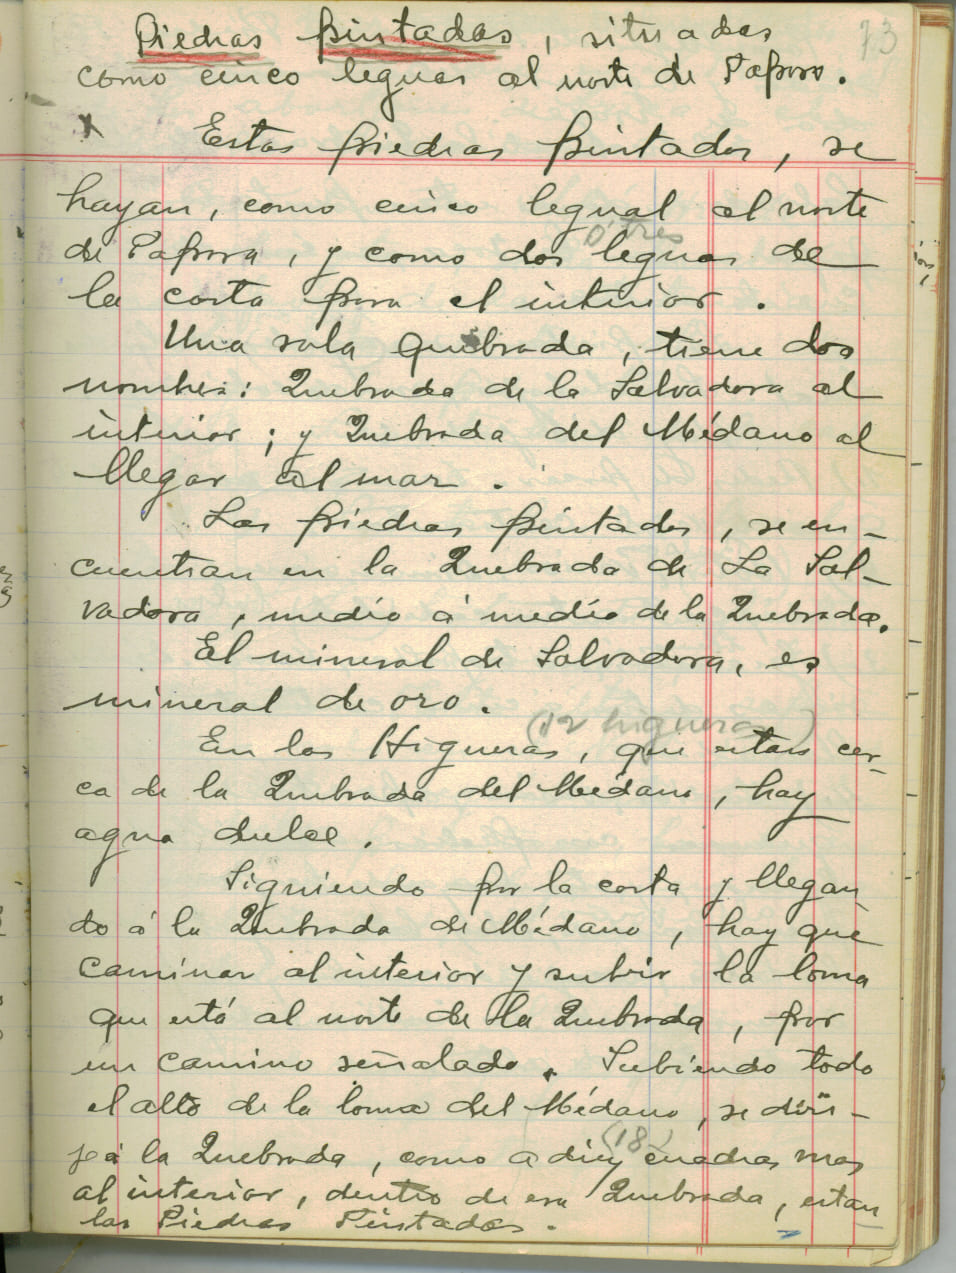 73
Piedras pintadas, situadas
como cinco leguas al norte de Paposo.
x Estas piedras pintadas, se
hayan, como cinco legual al norte
o tres
de Paposo, y como dos leguas de
la costa para el interior.
Una sola Quebrada, tiene dos
nombres: Quebrada de la Salvadora al
interior; y Quebrada del Médano al
llegar al mar.
Las piedras pintadas, se en-
cuentran en la Quebrada de La Sal-
vadora, medio á medio de la Quebrada.
El mineral de Salvadora, es
mineral de oro.
(12 higueras)
En las Higueras, que estan cer-
ca de la Quebrada del Médano, hay
agua dulce.
Siguiendo por la costa y llegan-
do á la Quebrada de Médano, hay que
caminar al interior y subir la loma
que está al norte de la Quebrada, por
un camino señalado. Subiendo todo
el alto de la loma del Médano, se diri-
(18)
je á la Quebrada, como a diez cuadras mas
al interior, dentro de esa Quebrada, estan
las Piedras Pintadas.